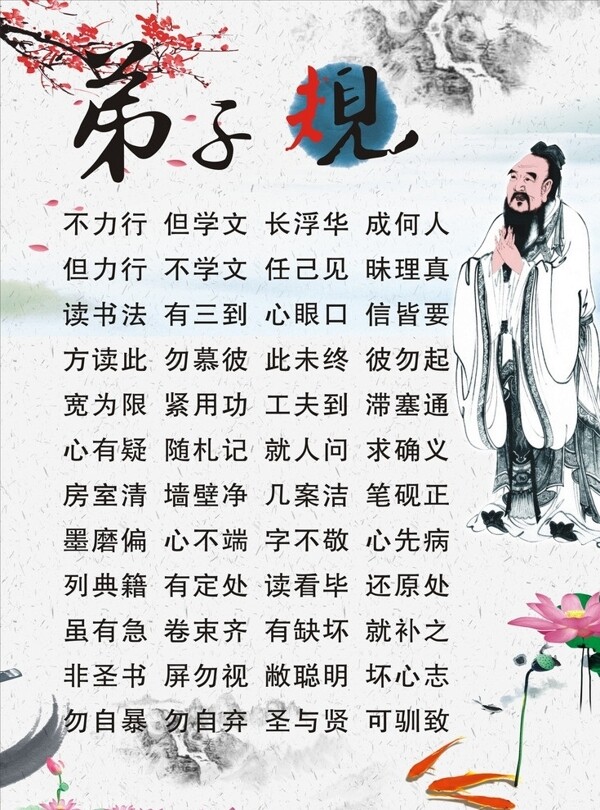 弟子规
不力行 但学文 长浮华 成何人
但力行 不学文 任己见 昧理真
读书法 有三到 心眼口 信皆要
方读此 勿慕彼 此未终 彼勿起
宽为限 紧用功 工夫到 滞塞通
心有疑 随札记 就人问 求确义
房室清 墙壁净 几案洁 笔砚正
墨磨偏 心不端 字不敬 心先病
列典籍 有定处 读看毕 还原处
虽有急 卷束齐 有缺坏 就补之
非圣书 屏勿视 敝聪明 坏心志
勿自暴 勿自弃 圣与贤 可驯致